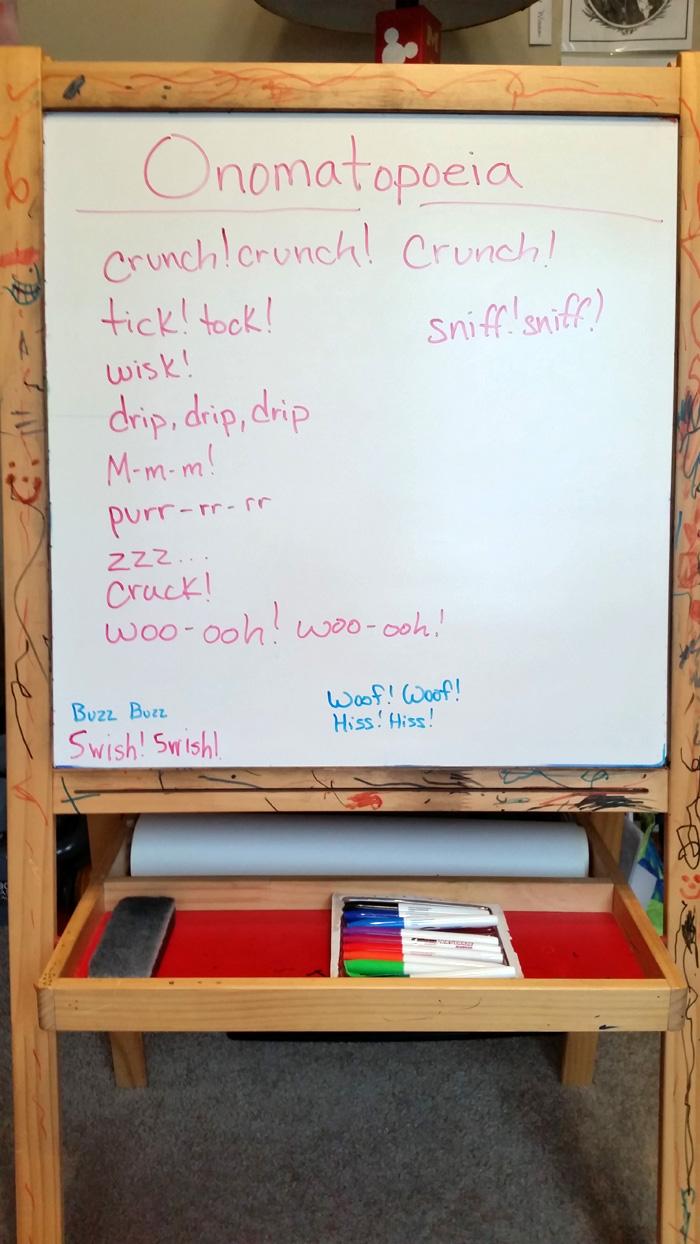 Onomatopoeia
crunch! crunch! Crunch!
tick! tock!
sniff! sniff!
wisk!
drip, drip, drip
M-m-m!
purr-rr-rr
zzz...
Crack!
woo-ooh! woo-ooh!
Woof! Woof!
Hiss! Hiss!
Buzz Buzz
Swish! Swish!